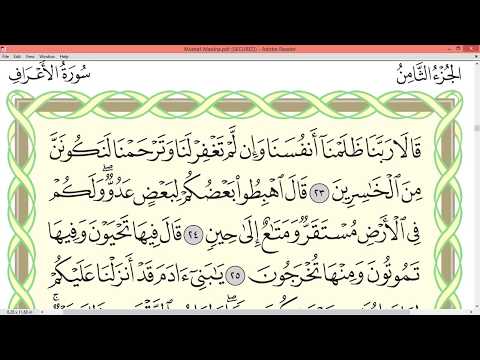 Mushaf Madina.pdf (SECURED) - Adobe Reader
File Edit View Window Help
الجزء الثامن
سورة الأعراف
قَالَا رَبَّنَا ظَلَمْنَآ أَنفُسَنَا وَإِن لَّمْ تَغْفِرْ لَنَا وَتَرْحَمْنَا لَنَكُونَنَّ
مِنَ ٱلْخَٰسِرِينَ ٢٣ قَالَ ٱهْبِطُوا۟ بَعْضُكُمْ لِبَعْضٍ عَدُوٌّ ۖ وَلَكُمْ
فِى ٱلْأَرْضِ مُسْتَقَرٌّ وَمَتَٰعٌ إِلَىٰ حِينٍ ٢٤ قَالَ فِيهَا تَحْيَوْنَ وَفِيهَا
تَمُوتُونَ وَمِنْهَا تُخْرَجُونَ ٢٥ يَٰبَنِىٓ ءَادَمَ قَدْ أَنزَلْنَا عَلَيْكُمْ